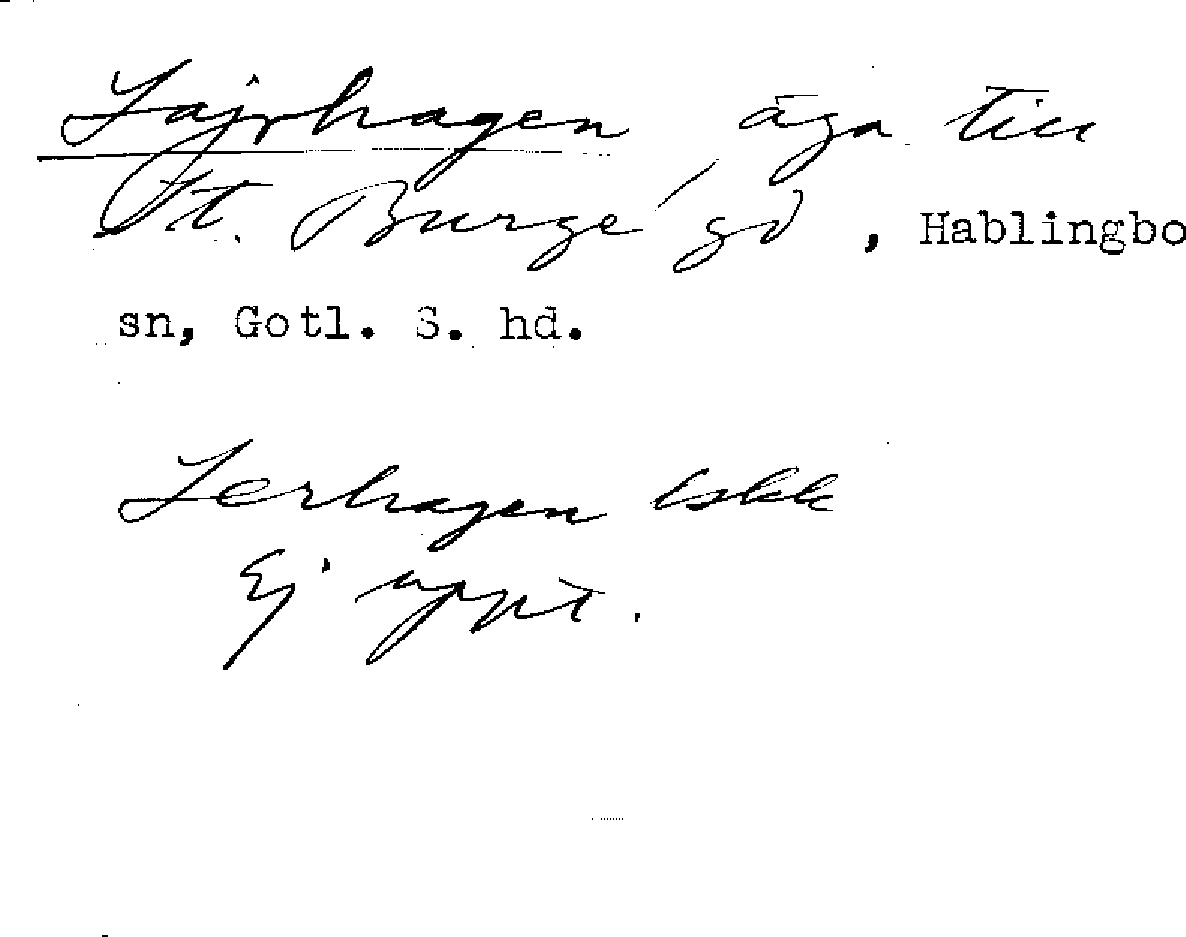 Lajrhagen äga till
St. Burge gd, Hablingbo
sn, Gotl. S. hd.
Lerhagen
Ej uppt.